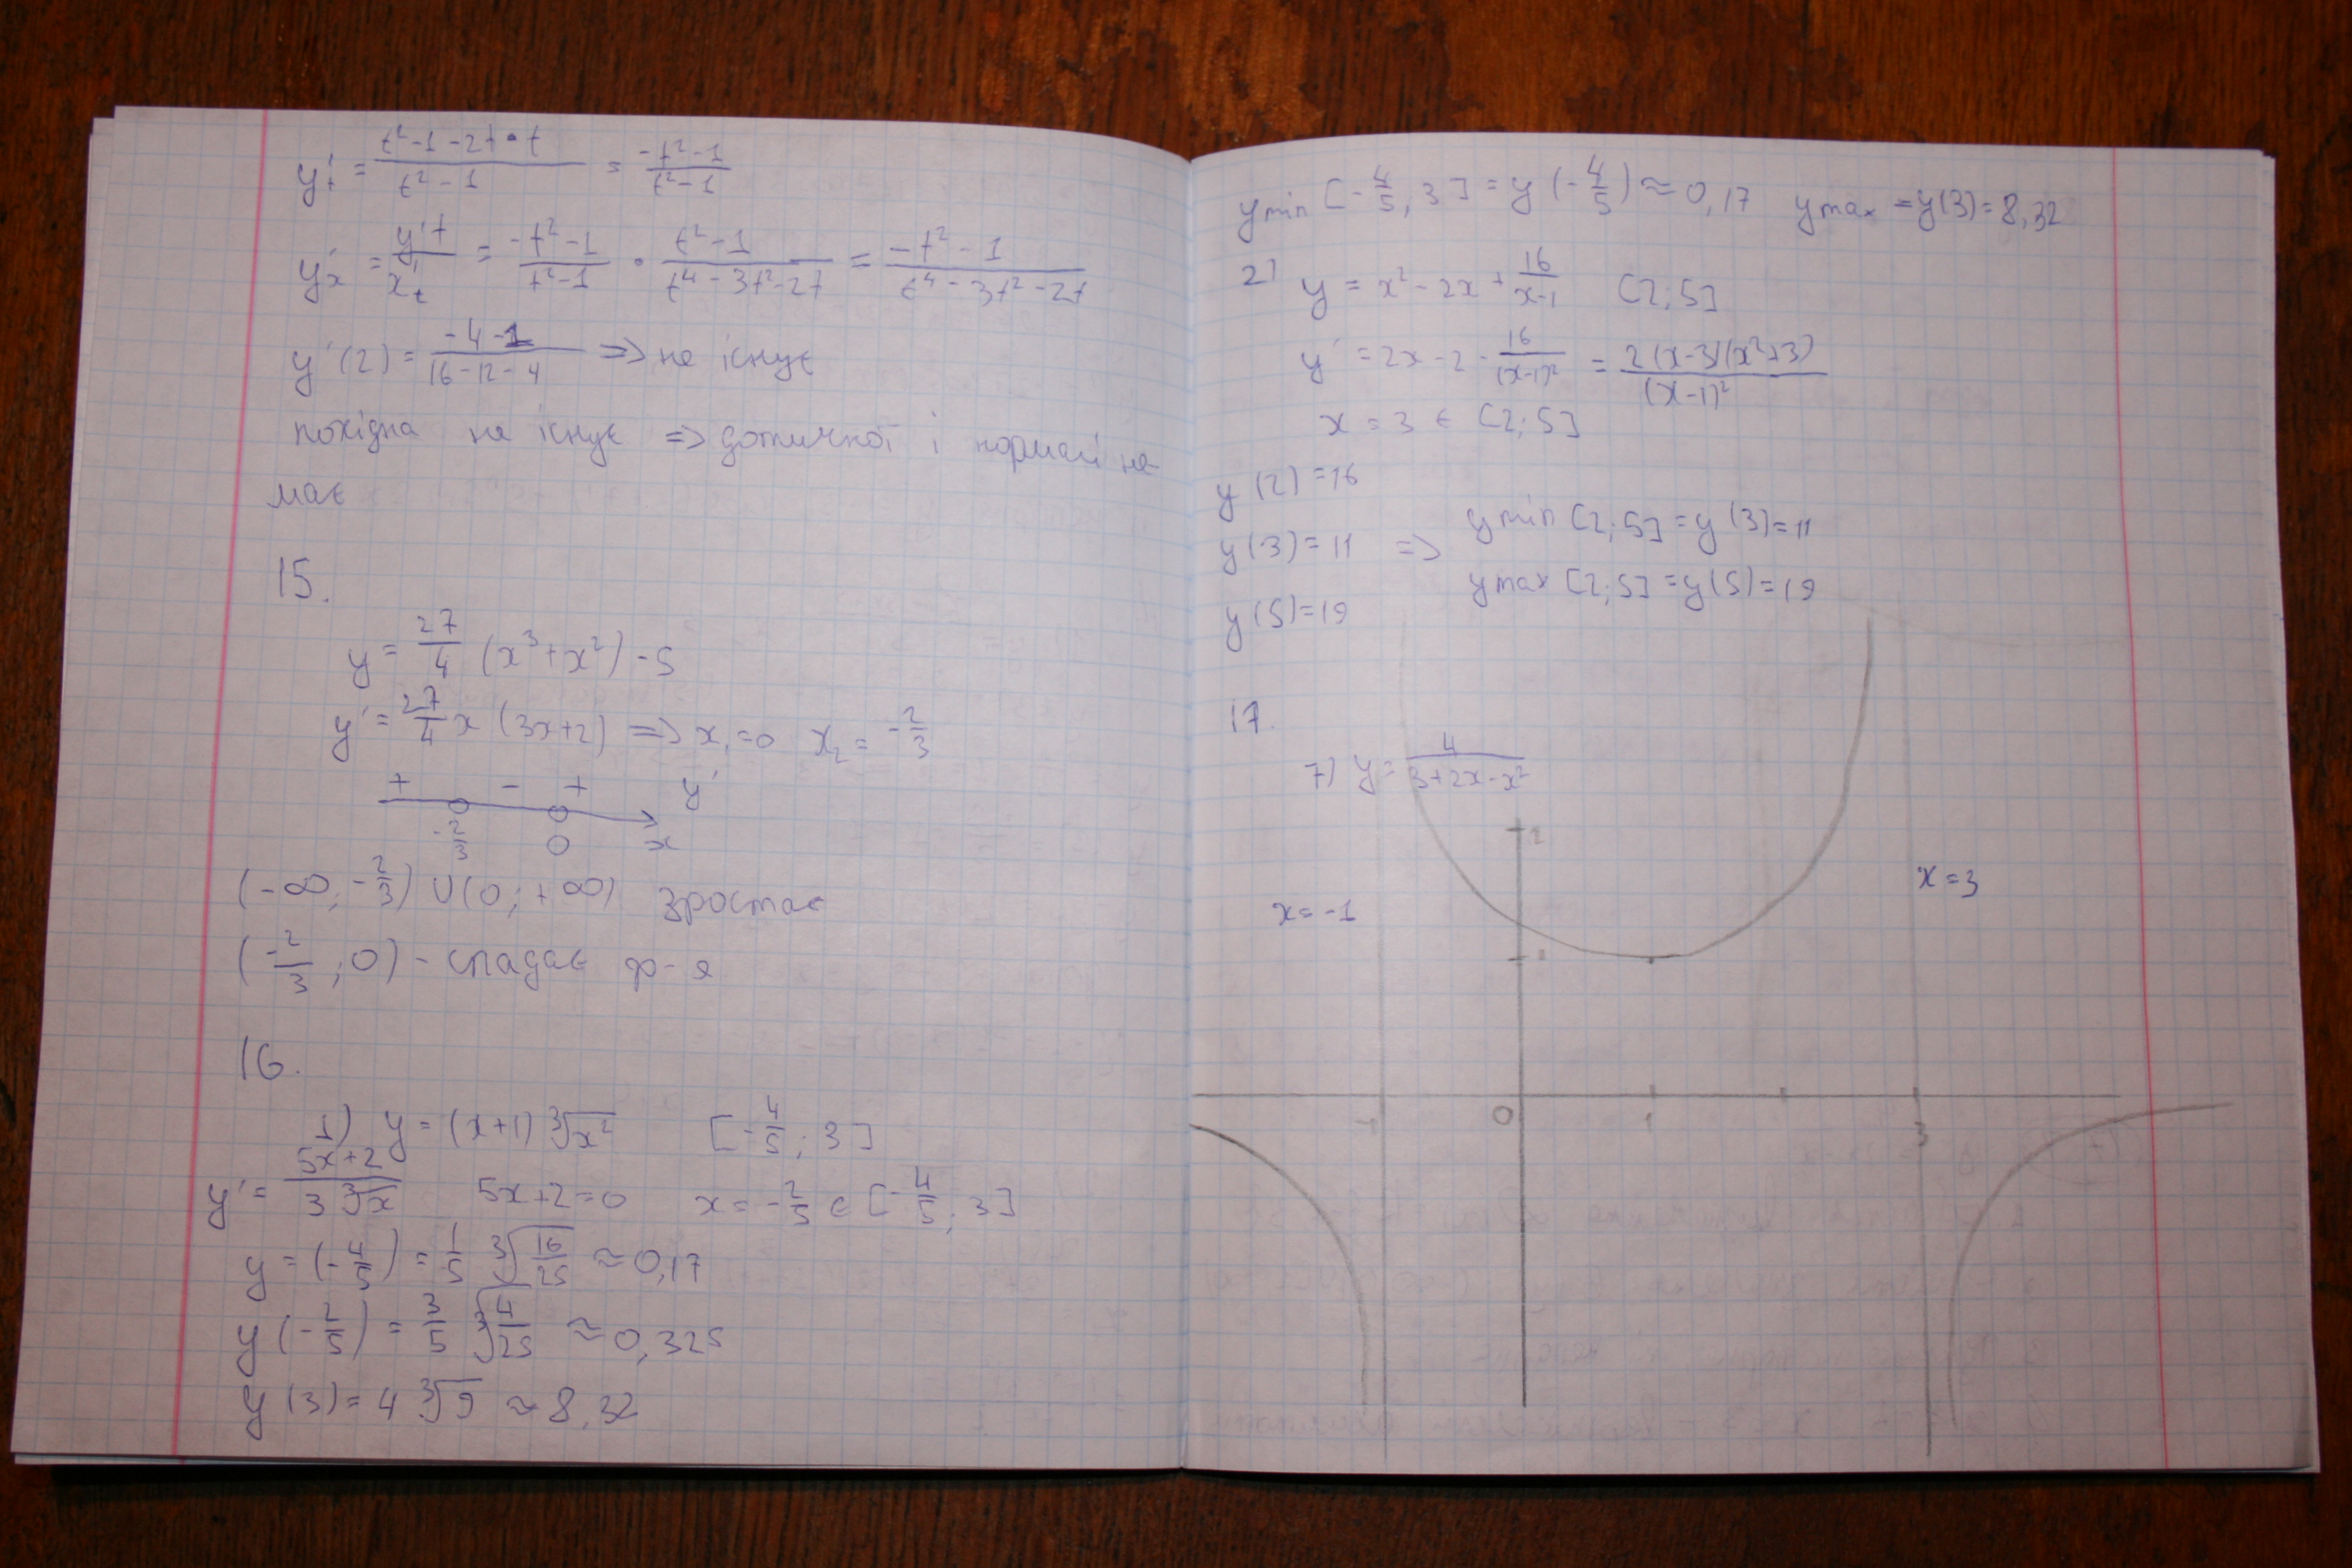 y't = (t²-1-2t•t)/(t²-1) = (-t²-1)/(t²-1)
y'x = y't/x't = (-t²-1)/(t²-1) • (t²-1)/(t⁴-3t²-2t) = (-t²-1)/(t⁴-3t²-2t)
y'(2) = (-4-1)/(16-12-4) => не існує
похідна не існує => дотичної і нормалі не-
має
15.
y = 27/4 (x³+x²) -5
y' = 27/4 x (3x+2) => x₁=0 x₂ = -2/3
+ - + y'
-2/3 0 x
(-∞; -2/3) U (0; +∞) зростає
(-2/3; 0) - спадає ф-я
16.
1) y = (x+1) ∛x² [-4/5; 3]
y' = (5x+2)/(3 ∛x) 5x+2=0 x = -2/5 ∈ [-4/5; 3]
y = (-4/5) = 1/5 ∛(16/25) ≈ 0,17
y (-2/5) = 3/5 ∛(4/25) ≈ 0,325
y (3) = 4 ∛9 ≈ 8,32
y min [-4/5, 3] = y (-4/5) ≈ 0,17 y max = y(3) = 8,32
2) y = x² - 2x + 16/(x-1) [2; 5]
y' = 2x - 2 - 16/(x-1)² = 2(x-3)(x²+3)/(x-1)²
x = 3 ∈ [2; 5]
y (2) = 16
y (3) = 11 => y min [2; 5] = y (3) = 11
y (5) = 19 y max [2; 5] = y(5) = 19
17.
7) y = 4/(3+2x-x²)
2
x = 3
x = -1
1
-1 0 1 3